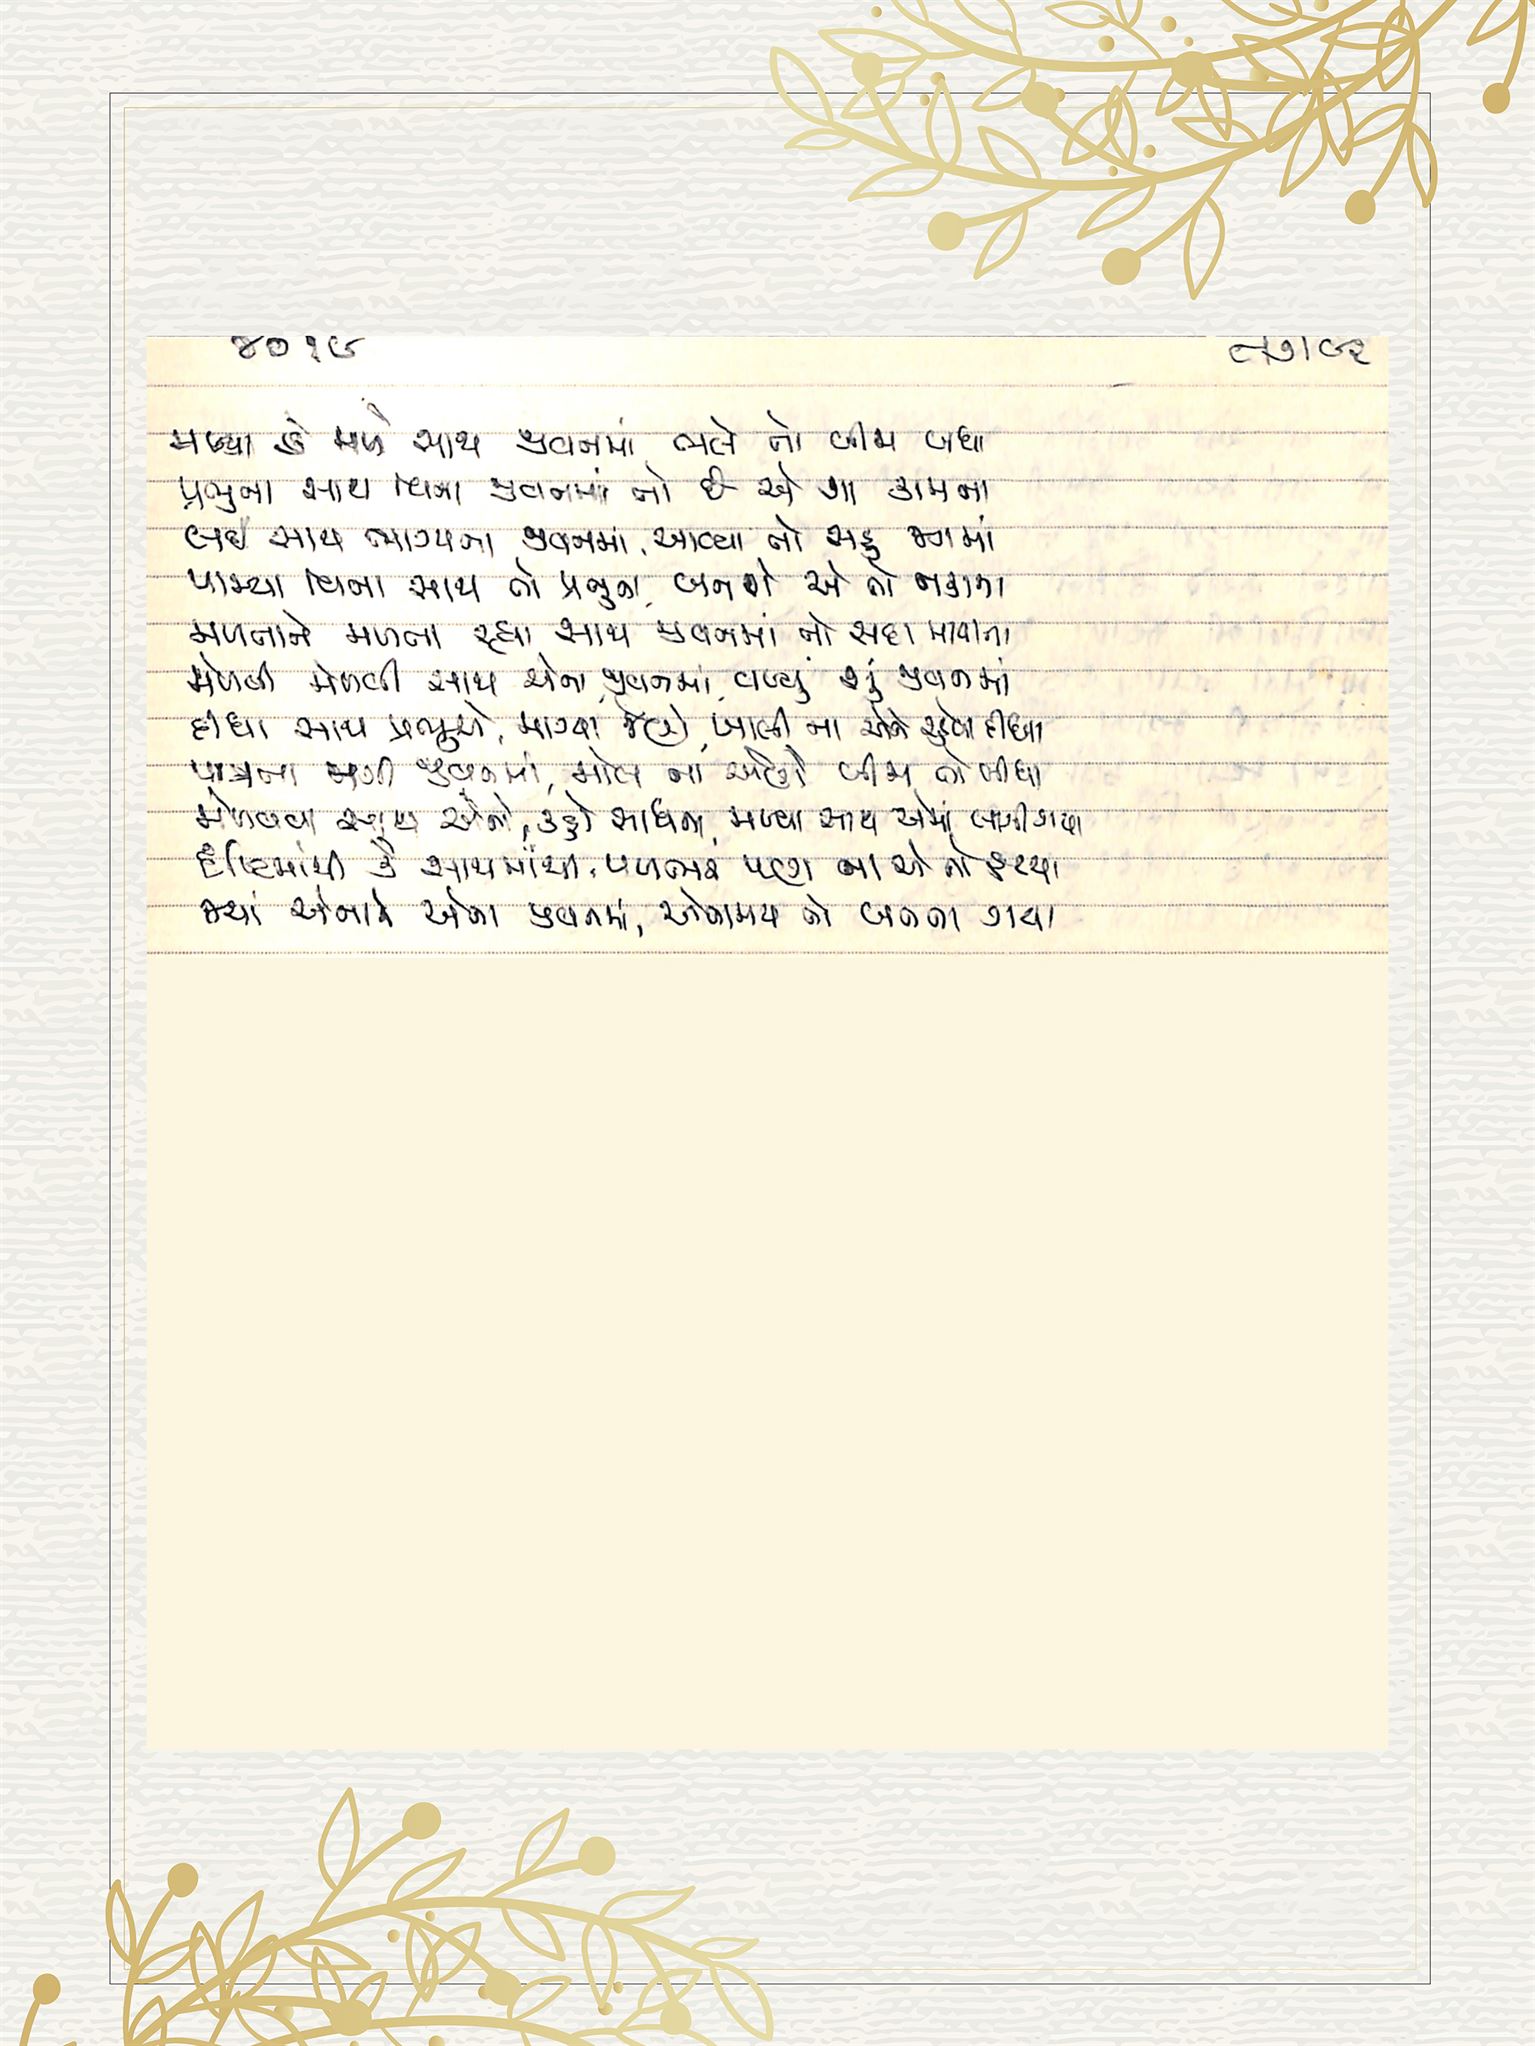 ૪૦૧૯
મળ્યા કે મળે સાથ જીવનમાં ભલે તો બીજા બધા
પ્રભુના સાથ વિના જીવનમાં તો છે એ શા કામના
લઈ સાથ ભાગ્યના જીવનમાં, આવ્યા તો સહુ જગમાં
પામ્યા વિના સાથ તો પ્રભુના, બનશે એ તો નકામા
મળનાને મળતા રહ્યા સાથ જીવનમાં તો સદા
મેળવી મેળવી સાથ એના જીવનમાં, વળ્યું શું જીવનમાં
દીધા સાથ પ્રભુએ, માગ્યા જેણે, ખાલી ના એને રહેવા દીધા
પાત્રતા જીવનમાં, મોલ ના એણે બીજા તો લીધા
મેળવવા સાથ એનો, કહો સાધના, મળ્યા સાથ એમાં લાગી ગયા
દૃષ્ટિમાંથી કે સાથમાંથી, પળભર પણ ના એ તો હટયા
જ્યાં એનાને એના જીવનમાં, એનામય તો બનતા ગયા